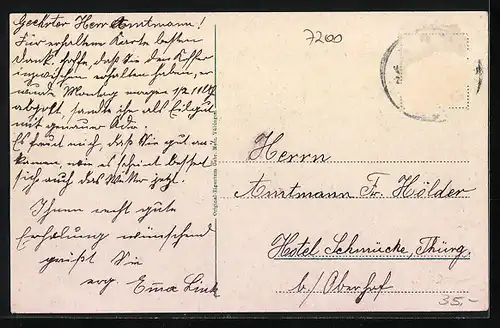 Geehrter Herr Amtmann!
Für erhaltene Karte besten
Dank. hoffe, daß Sie den Koffer
inzwischen erhalten haben, er
wurde Montag morgen 1/2 11 Uhr
abgeholt, sandte ihn als Eilgut
mit genauer Adr.
Es freut mich, daß Sie gut an-
kamen, wie es scheint bessert
sich auch das Wetter jetzt.
Ihnen recht gute
Erholung wünschend
grüßt Sie
erg. Emma Link
7200
Herrn
Amtmann Fr. Hölder
Hotel Schmücke, Thürg.
b/ Oberhof
35.-